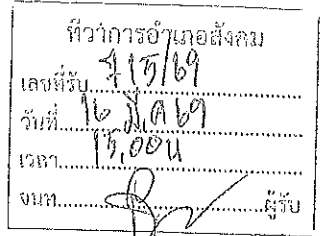 ที่ว่าการอำเภอสังคม
เลขที่รับ 915/69
วันที่ 16 มี.ค 69
เวลา 15.00 น
จนท. ผู้รับ